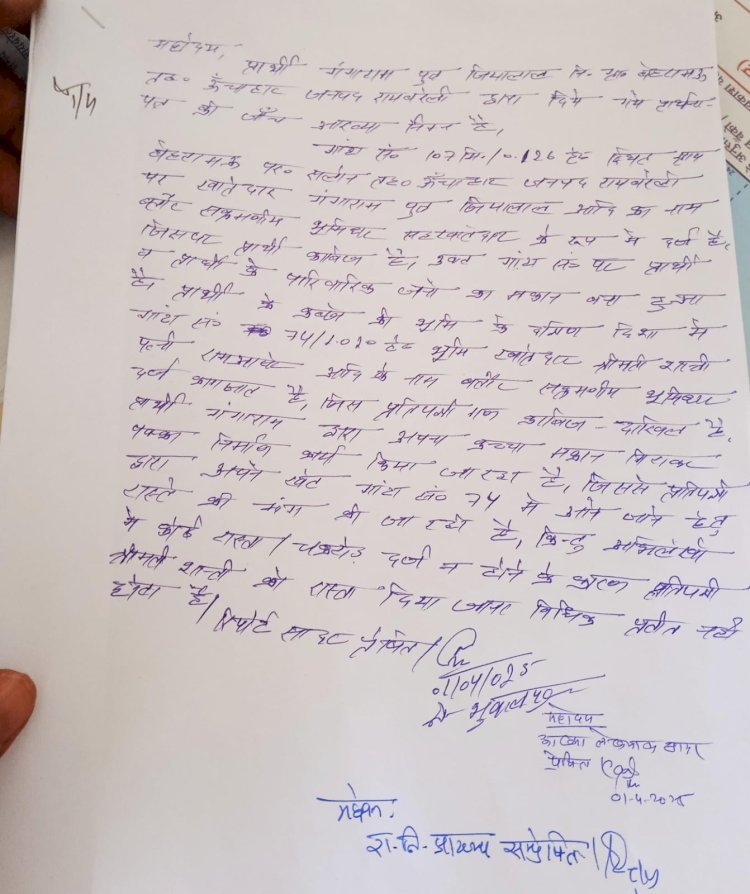 महोदय,
प्रार्थी गंगाराम पुत्र जियालाल नि० ग्रा० बेहरामऊ
तह० ऊँचाहार जनपद रायबरेली द्वारा दिये गये प्रार्थना
पत्र की जाँच आख्या निम्न है,
गाटा सं० 107मि./0.126 हे० स्थित ग्राम
बेहरामऊ पर० सलोन तह० ऊँचाहार जनपद रायबरेली
पर खातेदार गंगाराम पुत्र जियालाल आदि का नाम
बतौर संक्रमणीय भूमिधर सहखातेदार के रूप में दर्ज है,
जिसपर प्रार्थी काबिज है, उक्त गाटा सं० पर प्रार्थी
व प्रार्थी के पारिवारिक जनो का मकान बना हुआ
है, प्रार्थी के कब्जे की भूमि के दक्षिण दिशा में
गाटा सं० 74/1.020 हे० भूमि खातेदार श्रीमती शान्ती
पत्नी रामआधार आदि के नाम बतौर संक्रमणीय भूमिधर
दर्ज कागजात है, जिस प्रतिपक्षी गण काबिज-दाखिल है,
प्रार्थी गंगाराम द्वारा अपना कच्चा मकान गिराकर
पक्का निर्माण कार्य किया जा रहा है, जिससे प्रतिपक्षी
द्वारा अपने खेत गाटा सं० 74 में आने जाने हेतु
रास्ते की मांग की जा रही है, किन्तु अभिलेखों
में कोई रास्ता/चकरोड दर्ज न होने के कारण प्रतिपक्षी
श्रीमती शान्ती को रास्ता दिया जाना विधिक प्रतीत नही
होता है।
रिपोर्ट सादर प्रेषित।
01/04/025
महोदय
आख्या लेखपाल सादर
प्रेषित
01-4-2025
महोदय,
रा-नि-आख्या सम्प्रेषित।